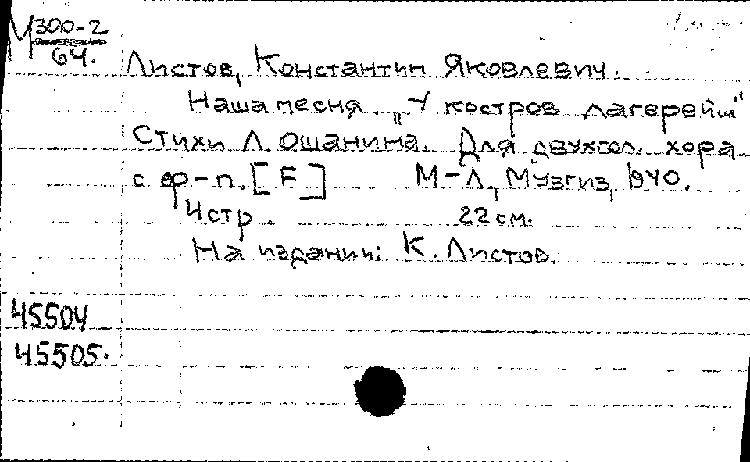 М 300-2
64.
Листов, Константин Яковлевич.
Наша песня „У костров лагерей..."
Стихи Л. Ошанина. Для двухгол. хора
с ф-п. [F] М-Л, Музгиз, 1940.
4 стр. 22 см.
На издании: К. Листов.
45504
45505.